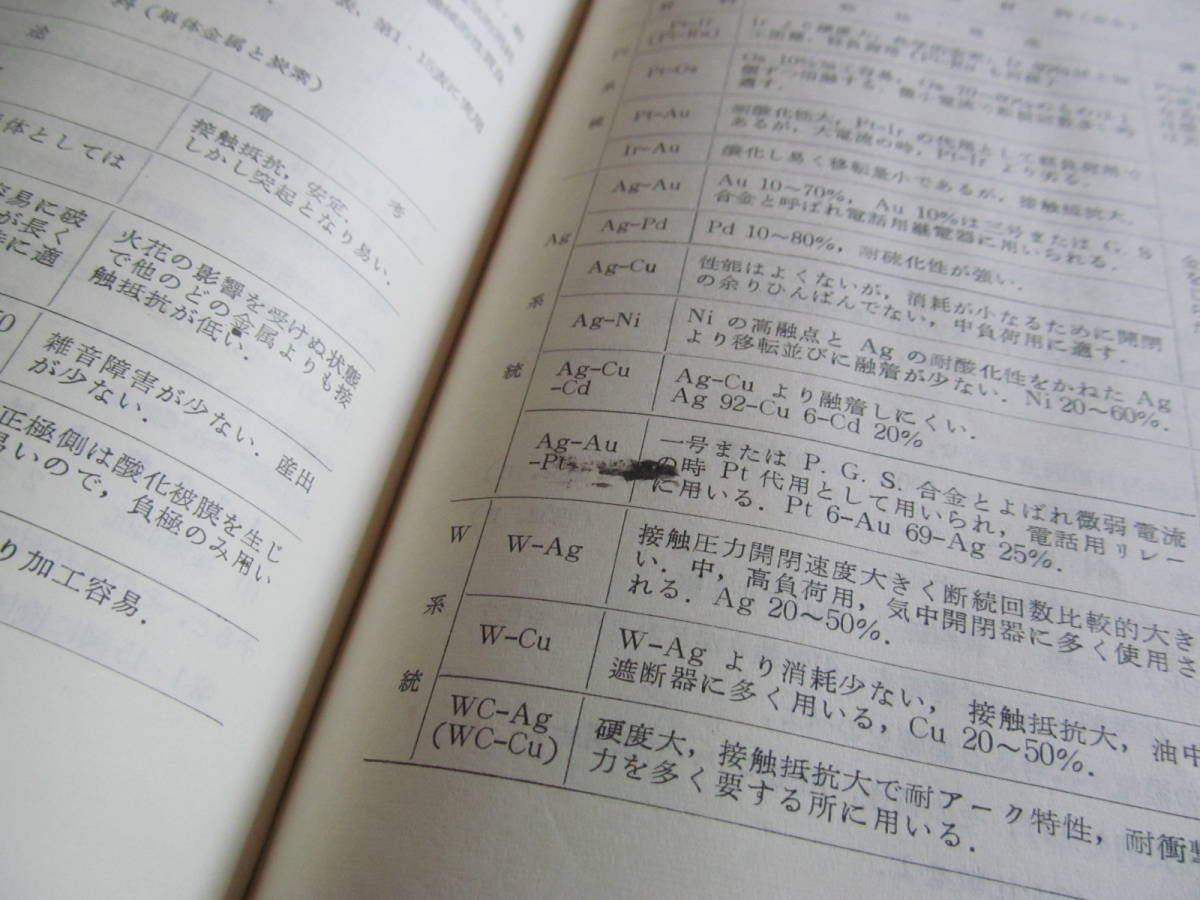 表、第1・15表に実用
料(単体金属と炭素)
途
備 考
体としては
接触抵抗，安定，
しかし突起となり易い．
容易に破
が長く
に適
火花の影響を受けぬ状態
で他のどの金属よりも接
触抵抗が低い．
雑音障害が少ない．産出
が少ない．
正極側は酸化被膜を生じ
易いので，負極のみ用い
り加工容易．
Pt-Ir
Pt-Os
Pt-Au
耐酸化性大，Pt-Ir の代用として
あるが，大電流の時，Pt-Ir より劣る．
Ir-Au
酸化し易く移転量小であるが，接触抵抗大．
Ag 系統
Ag-Au
Au 10～70%， Au 10%は三号または G. S
合金と呼ばれ電話用継電器に用いられる．
Ag-Pd
Pd 10～80%，耐硫化性が強い．
Ag-Cu
性能はよくないが，消耗が小なるために開閉
の余りひんぱんでない，中負荷用に適す．
Ag-Ni
Ni の高融点と Ag の耐酸化性をかねた Ag
より移転並びに融着が少ない．Ni 20～60%．
Ag-Cu
-Cd
Ag-Cu より融着しにくい．
Ag 92-Cu 6-Cd 20%
Ag-Au
-Pt
一号または P. G. S. 合金とよばれ微弱電流
の時 Pt 代用として用いられ，電話用リレー
に用いる．Pt 6-Au 69-Ag 25%．
W 系統
W-Ag
接触圧力開閉速度大きく断続回数比較的大き
い．中，高負荷用，気中開閉器に多く使用さ
れる．Ag 20～50%．
W-Cu
W-Ag より消耗少ない，接触抵抗大，油中
遮断器に多く用いる，Cu 20～50%．
WC-Ag
(WC-Cu)
硬度大，接触抵抗大で耐アーク特性，耐衝撃
力を多く要する所に用いる．